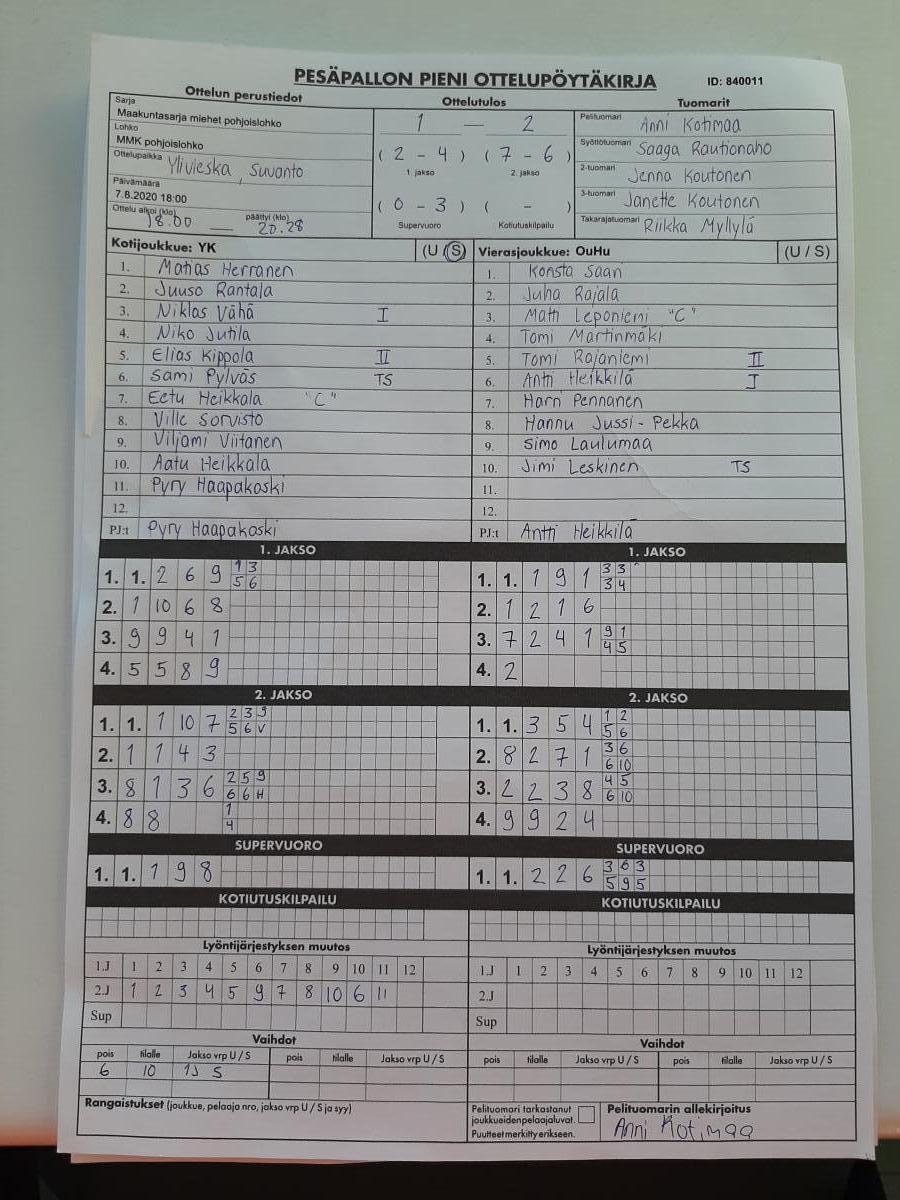 PESÄPALLON PIENI OTTELUPÖYTÄKIRJA ID: 840011
Ottelun perustiedot Ottelutulos Tuomarit
Sarja
Maakuntasarja miehet pohjoislohko
Lohko
MMK pohjoislohko
Ottelupaikka Ylivieska, Suvanto
Päivämäärä
7.8.2020 18:00
Ottelu alkoi (klo) 18.00 päättyi (klo) 20.28
1 — 2
( 2 - 4 ) ( 7 - 6 )
1. jakso 2. jakso
( 0 - 3 ) ( - )
Supervuoro Kotiutuskilpailu
Pelituomari Anni Kotimaa
Syöttötuomari Saaga Rautionaho
2-tuomari Jenna Koutonen
3-tuomari Janette Koutonen
Takarajatuomari Riikka Myllylä
Kotijoukkue: YK (U / S)
1. Matias Herranen
2. Juuso Rantala
3. Niklas Vähä I
4. Niko Jutila
5. Elias Kippola II
6. Sami Pylväs TS
7. Eetu Heikkala "C"
8. Ville Sorvisto
9. Viljami Viitanen
10. Aatu Heikkala
11. Pyry Haapakoski
12.
PJ:t Pyry Haapakoski
Vierasjoukkue: OuHu (U / S)
1. Konsta Saari
2. Juha Rajala
3. Matti Leponiemi "C"
4. Tomi Martinmäki
5. Tomi Rajaniemi II
6. Antti Heikkilä I
7. Harri Pennanen
8. Hannu Jussi-Pekka
9. Simo Laulumaa
10. Jimi Leskinen TS
11.
12.
PJ:t Antti Heikkilä
1. JAKSO
1. 1. 2 6 9 1 3
5 6
2. 1 10 6 8
3. 9 9 4 1
4. 5 5 8 9
1. JAKSO
1. 1. 1 9 1 3 3
3 4
2. 1 2 1 6
3. 7 2 4 1 9 1
4 5
4. 2
2. JAKSO
1. 1. 1 10 7 2 3 9
5 6 V
2. 1 1 4 3
3. 8 1 3 6 2 5 9
6 6 H
4. 8 8 1
4
2. JAKSO
1. 1. 3 5 4 1 2
5 6
2. 8 2 7 1 3 6
6 10
3. 2 2 3 8 4 5
6 10
4. 9 9 2 4
SUPERVUORO
1. 1. 1 9 8
SUPERVUORO
1. 1. 2 2 6 3 6 3
5 9 5
KOTIUTUSKILPAILU
KOTIUTUSKILPAILU
Lyöntijärjestyksen muutos
1.J 1 2 3 4 5 6 7 8 9 10 11 12
2.J 1 2 3 4 5 9 7 8 10 6 11
Sup
Lyöntijärjestyksen muutos
1.J 1 2 3 4 5 6 7 8 9 10 11 12
2.J
Sup
Vaihdot
pois tilalle Jakso vrp U / S pois tilalle Jakso vrp U / S
6 10 1J S
Vaihdot
pois tilalle Jakso vrp U / S pois tilalle Jakso vrp U / S
Rangaistukset (joukkue, pelaaja nro, jakso vrp U / S ja syy)
Pelituomari tarkastanut
joukkueidenpelaajaluvat.
Puutteet merkitty erikseen.
Pelituomarin allekirjoitus
Anni Kotimaa